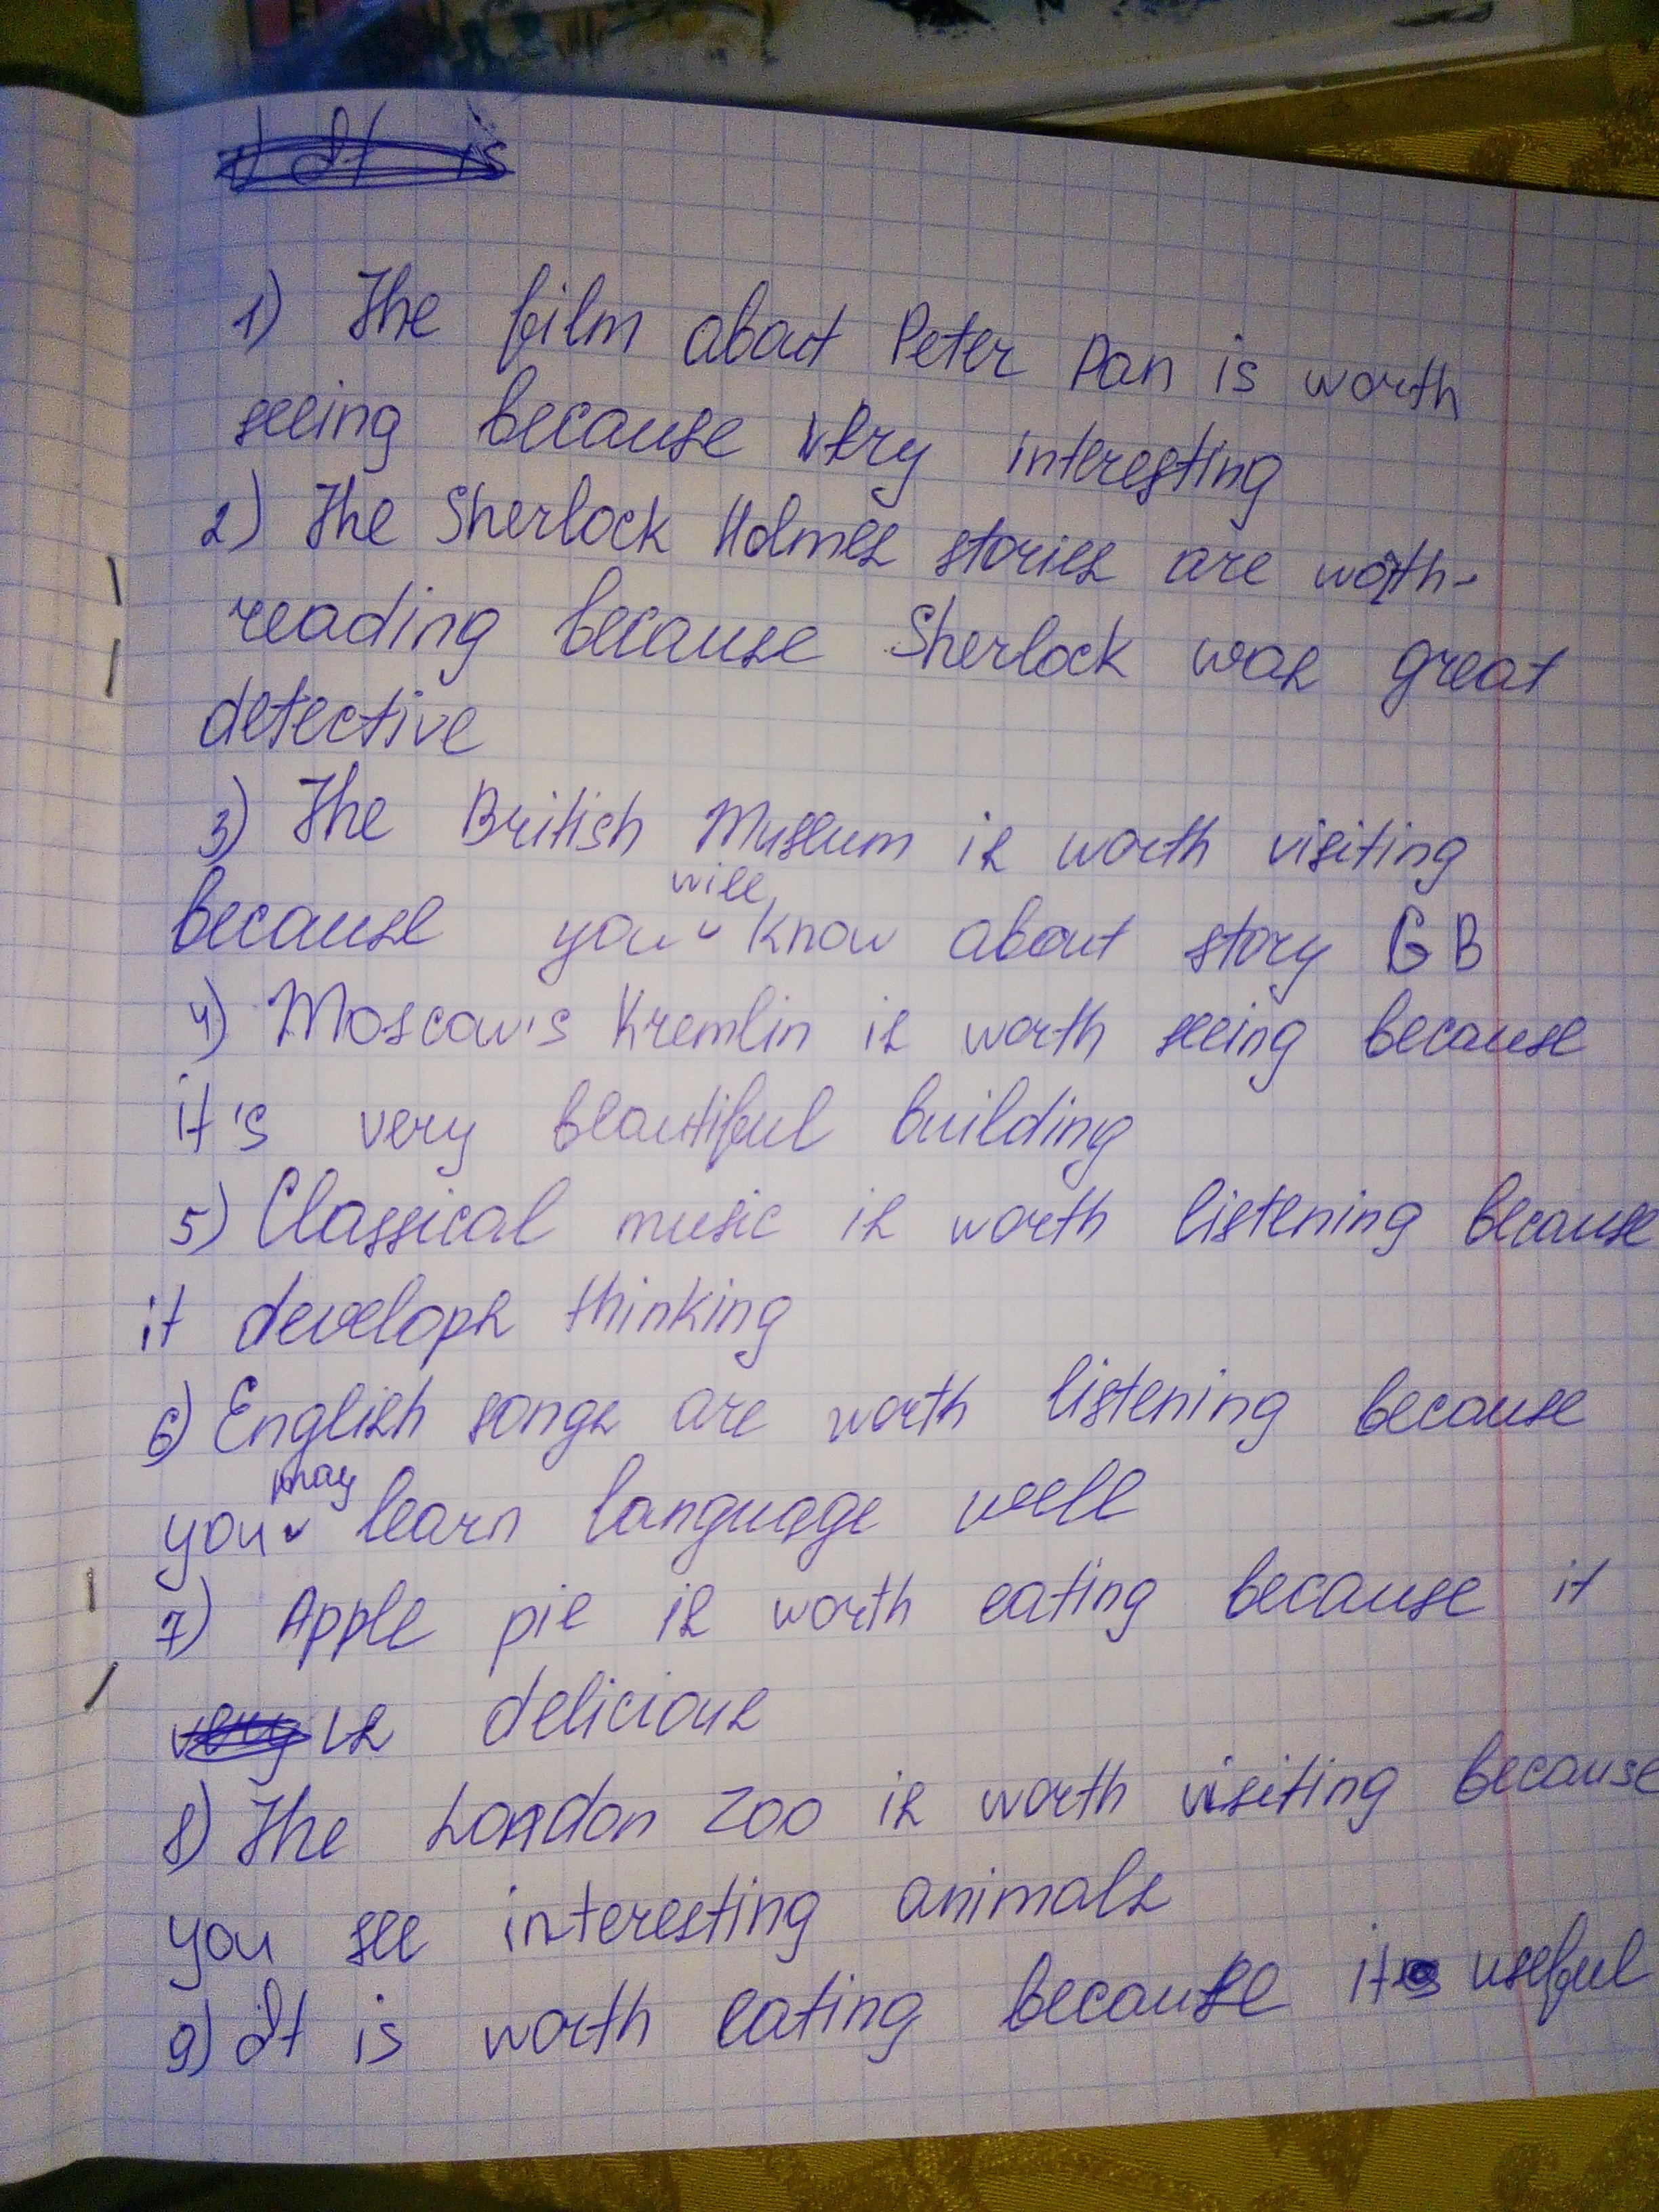 1) It is
1) The film about Peter Pan is worth
seeing because very interesting
2) The Sherlock Holmes stories are worth-
reading because Sherlock was great
detective
3) The British Museum is worth visiting
because you will know about story GB
4) Moscow's Kremlin is worth seeing because
it's very beautiful building
5) Classical music is worth listening because
it develops thinking
6) English songs are worth listening because
you may learn language well
7) Apple pie is worth eating because it
very is delicious
8) The London Zoo is worth visiting because
you see interesting animals
9) It is worth eating because it's useful